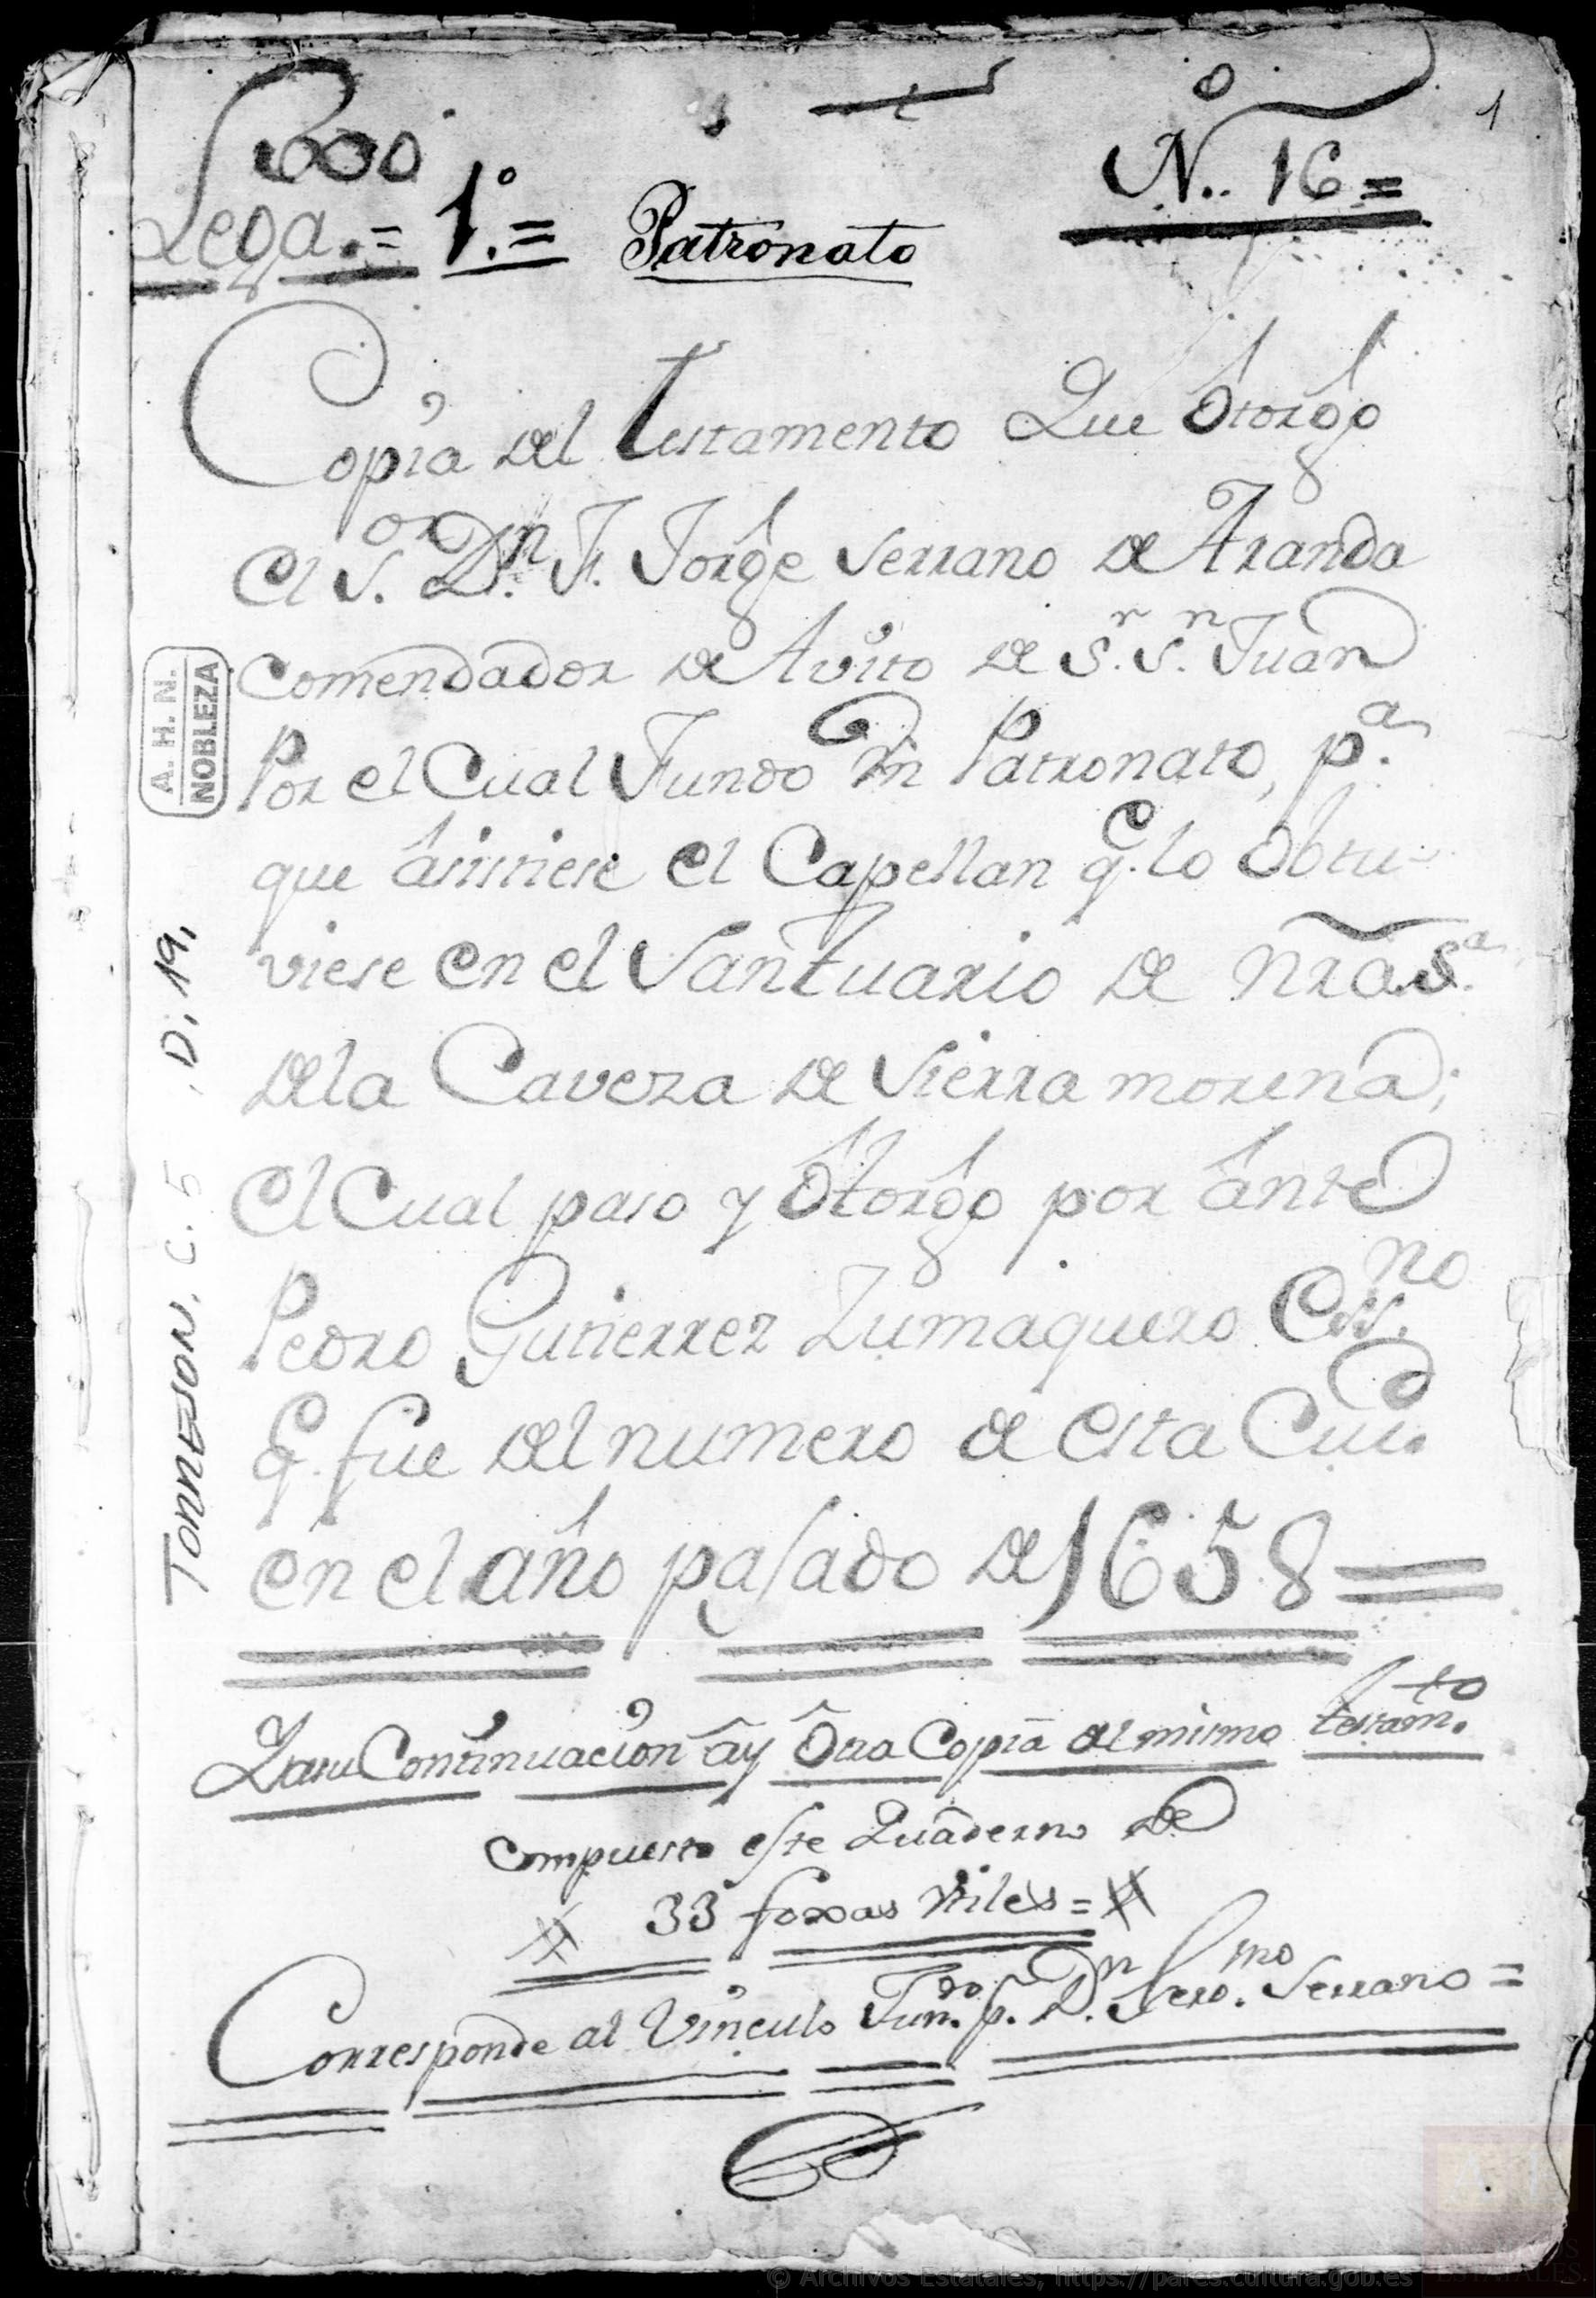 1
N.º 16 =
Lega.jo = 1.º =
Patronato
Copia del Testamento Que Otorgó
el S.or D.n F. Jorge Serrano de Aranda
Comendador de Avito de S.r S.n Juan
Por el Cual Fundo Un Patronato, p.a
que asistiese el Capellan q.e lo Obtu-
viese en el Santuario de Nra S.a
de la Caveza de Sierra morena;
el Cual paso y Otorgó por ante
Pedro Gutierrez Zumaquero Ess.no
q.e fue del numero de esta Ciud.
en el año pasado de 1658 =
Y a su Continuacion ay Otra Copia del mismo testam.to
Compuesto este Quaderno de
33 foxas utiles =
Corresponde al Vinculo Fun.do p.r D.n Gero.mo Serrano =
A. H. N.
NOBLEZA
TORRESON, C. 5, D. 19,
© Archivos Estatales, https://pares.cultura.gob.es